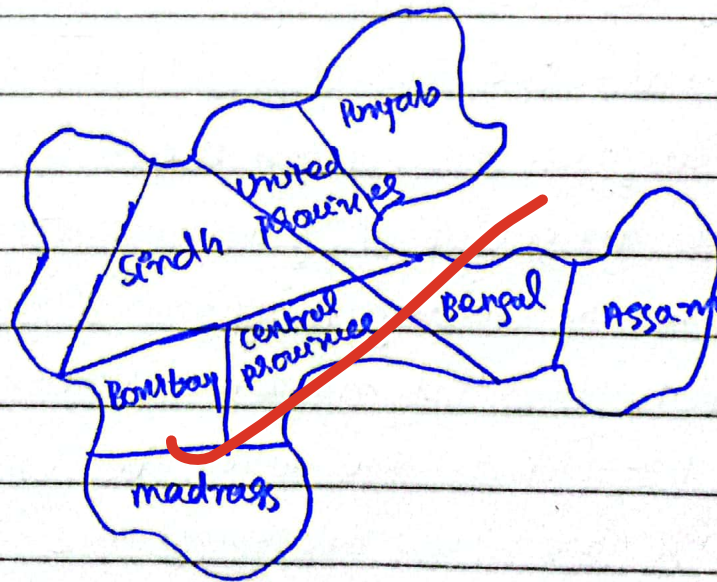 Punjab
United
Provinces
Sindh
Central
provinces
Bengal
Assam
Bombay
madrass